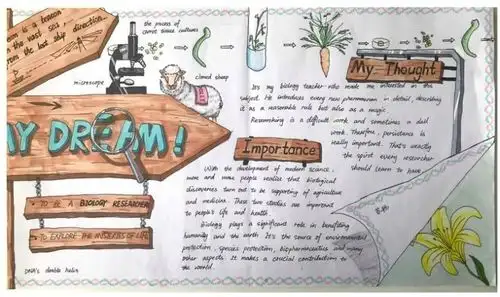 n is a beacon
n the vast sea
From the lost ship direction...
the process of
carrot tissue cultures
microscope
cloned sheep
MY DREAM!
TO BE A BIOLOGY RESEARCHER
TO EXPLORE THE MYSTERIES OF LIFE
DNA's double helix
My Thought
It's my biology teacher who made me interested in this
subject. He introduces every new phenomenon in detail, describing
it as a reasonable rule but also as a magic.
Researching is a difficult work and sometimes a dull
work. Therefore, persistence is
really important. That's exactly
the spirit every researcher
should learn to have
Importance
With the development of modern science,
more and more people realize that biological
discoveries turn out to be supporting of agriculture
and medicine. These two studies are important
to people's life and health.
Biology plays a significant role in benefiting
humanity and the earth. It's the source of environmental
protection, species protection, biopharmaceutics and many
other aspects. It makes a crucial contribution to
the world.